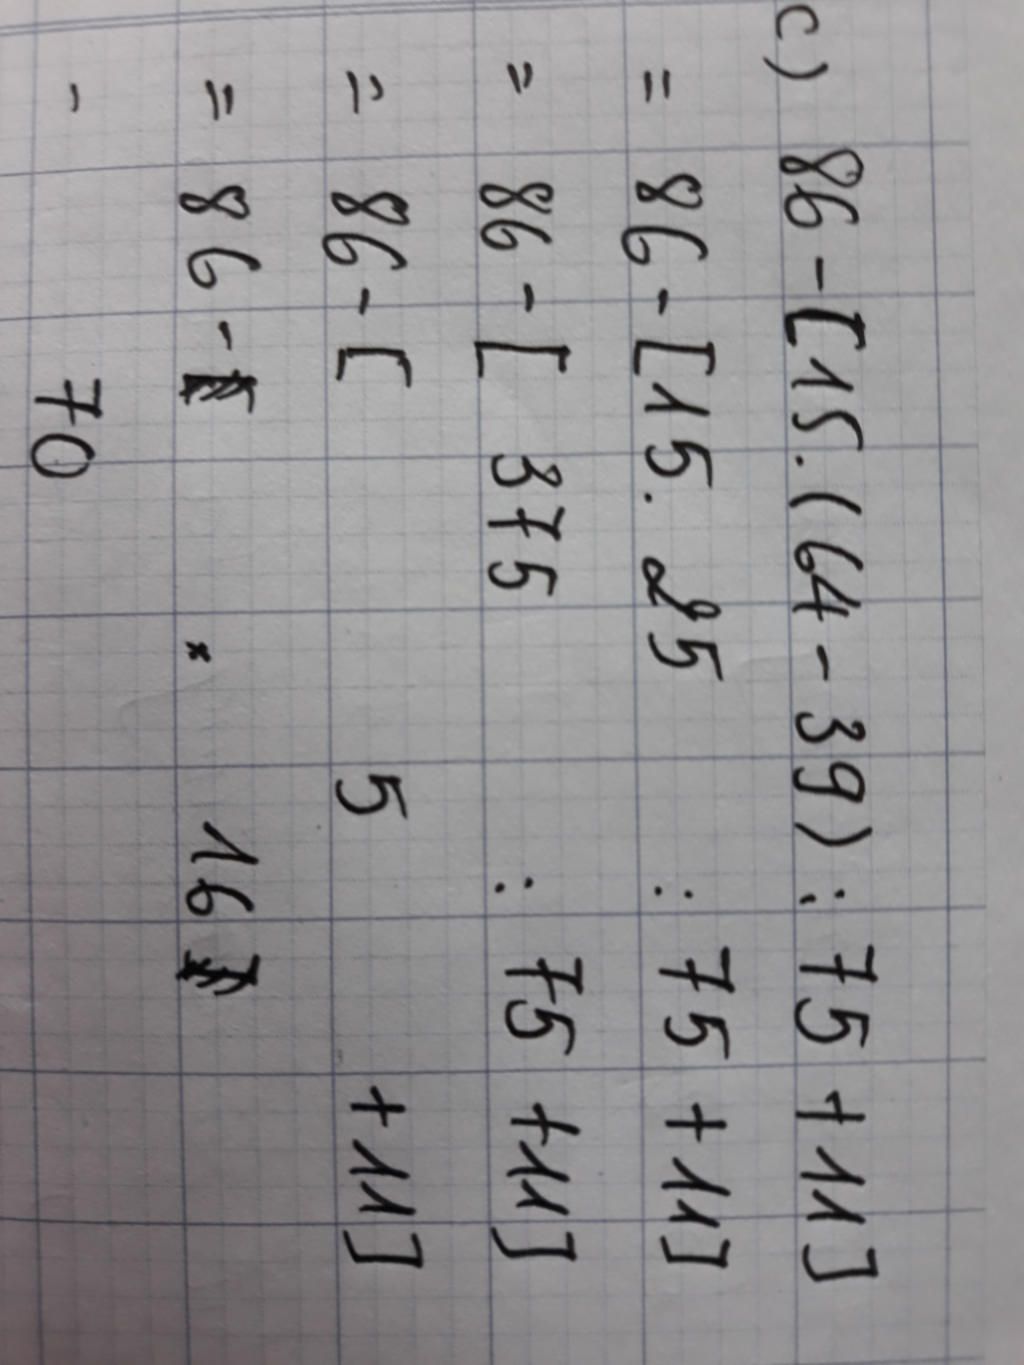 c) 86 - [15.(64 - 39) : 75 + 11]
= 86 - [15. 25 : 75 + 11]
= 86 - [ 375 : 75 + 11]
= 86 - [ 5 + 11]
= 86 - 16
- 70